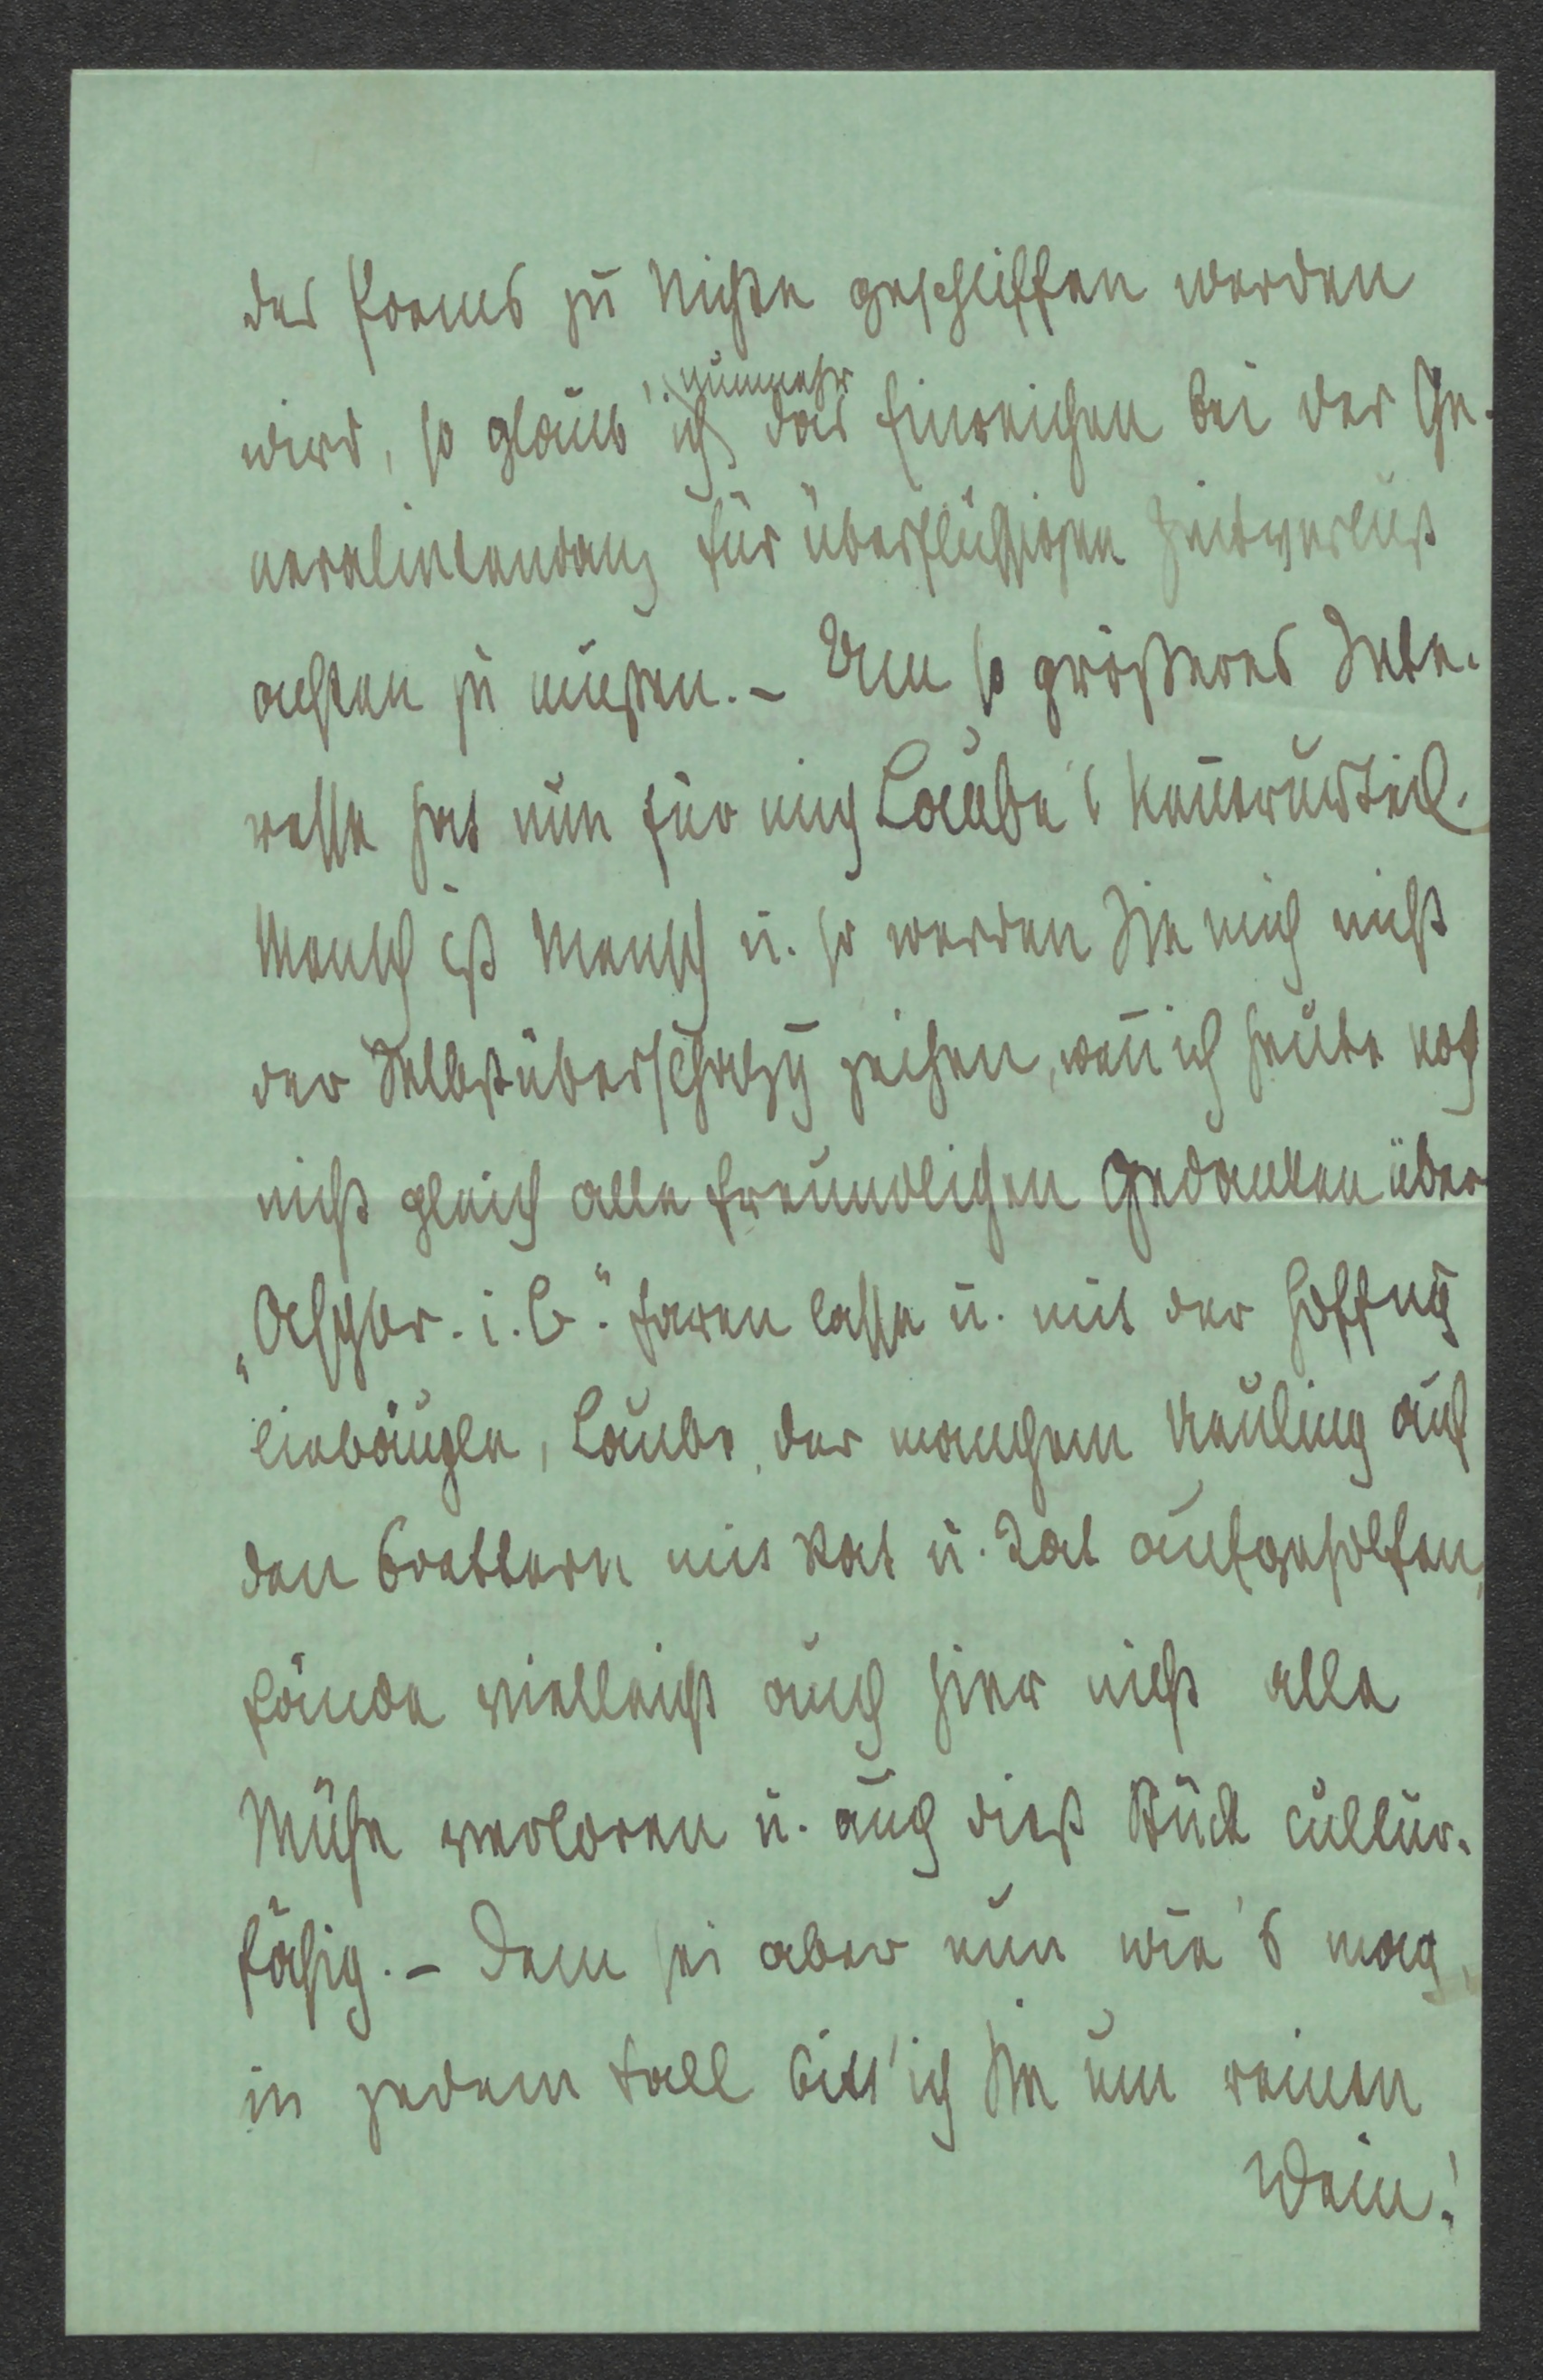 des Poems zu Nichte geschliffen werden
wird, so glaub' ich nunmehr das Einreichen bei der Ge-
neralintendanz für überflüssigen Zeitverlust
achten zu müssen. – Um so größeres Inte-
resse hat nun für mich Laube's Kennerurteil.
Mensch ist Mensch u. so werden Sie mich nicht
der Selbstüberschätzg zeihen, wenn ich heute noch
nicht gleich alle freundlichen Gedanken über
" i. C." faren lasse u. mit der Hoffng
liebäugle, Laube, der manchem Neuling auf
den Brettern mit Rat u. Tat aufgeholfen,
fände vielleicht auch hier nicht alle
Mühe verloren u. auch dieß Stück cultur-
fähig. – Dem sei aber nun wie's mag,
in jedem Fall bitt' ich Sie um reinen
Wein!